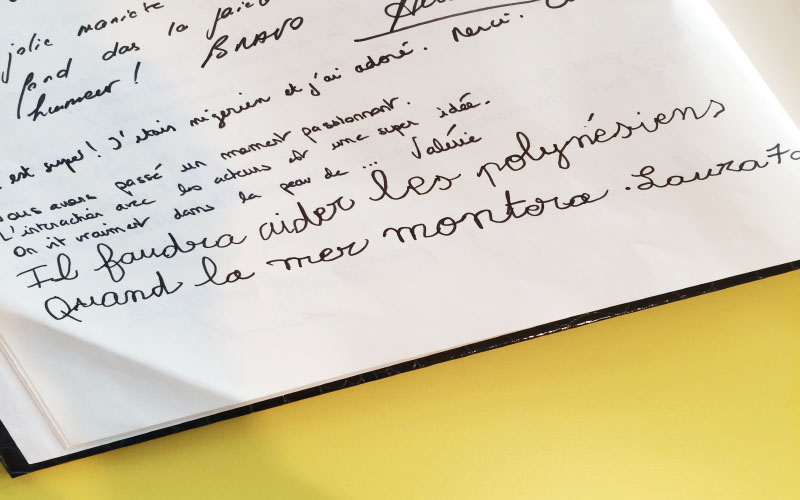 jolie manière
fond das la
humeur ! BRAVO
est super ! J'étais nigérien et j'ai adoré. Merci.
Nous avons passé un moment passionnant.
L'interaction avec les acteurs est une super idée.
On vit vraiment dans la peau de ... Valérie
Il faudra aider les polynésiens
Quand la mer montera . Laura 7a